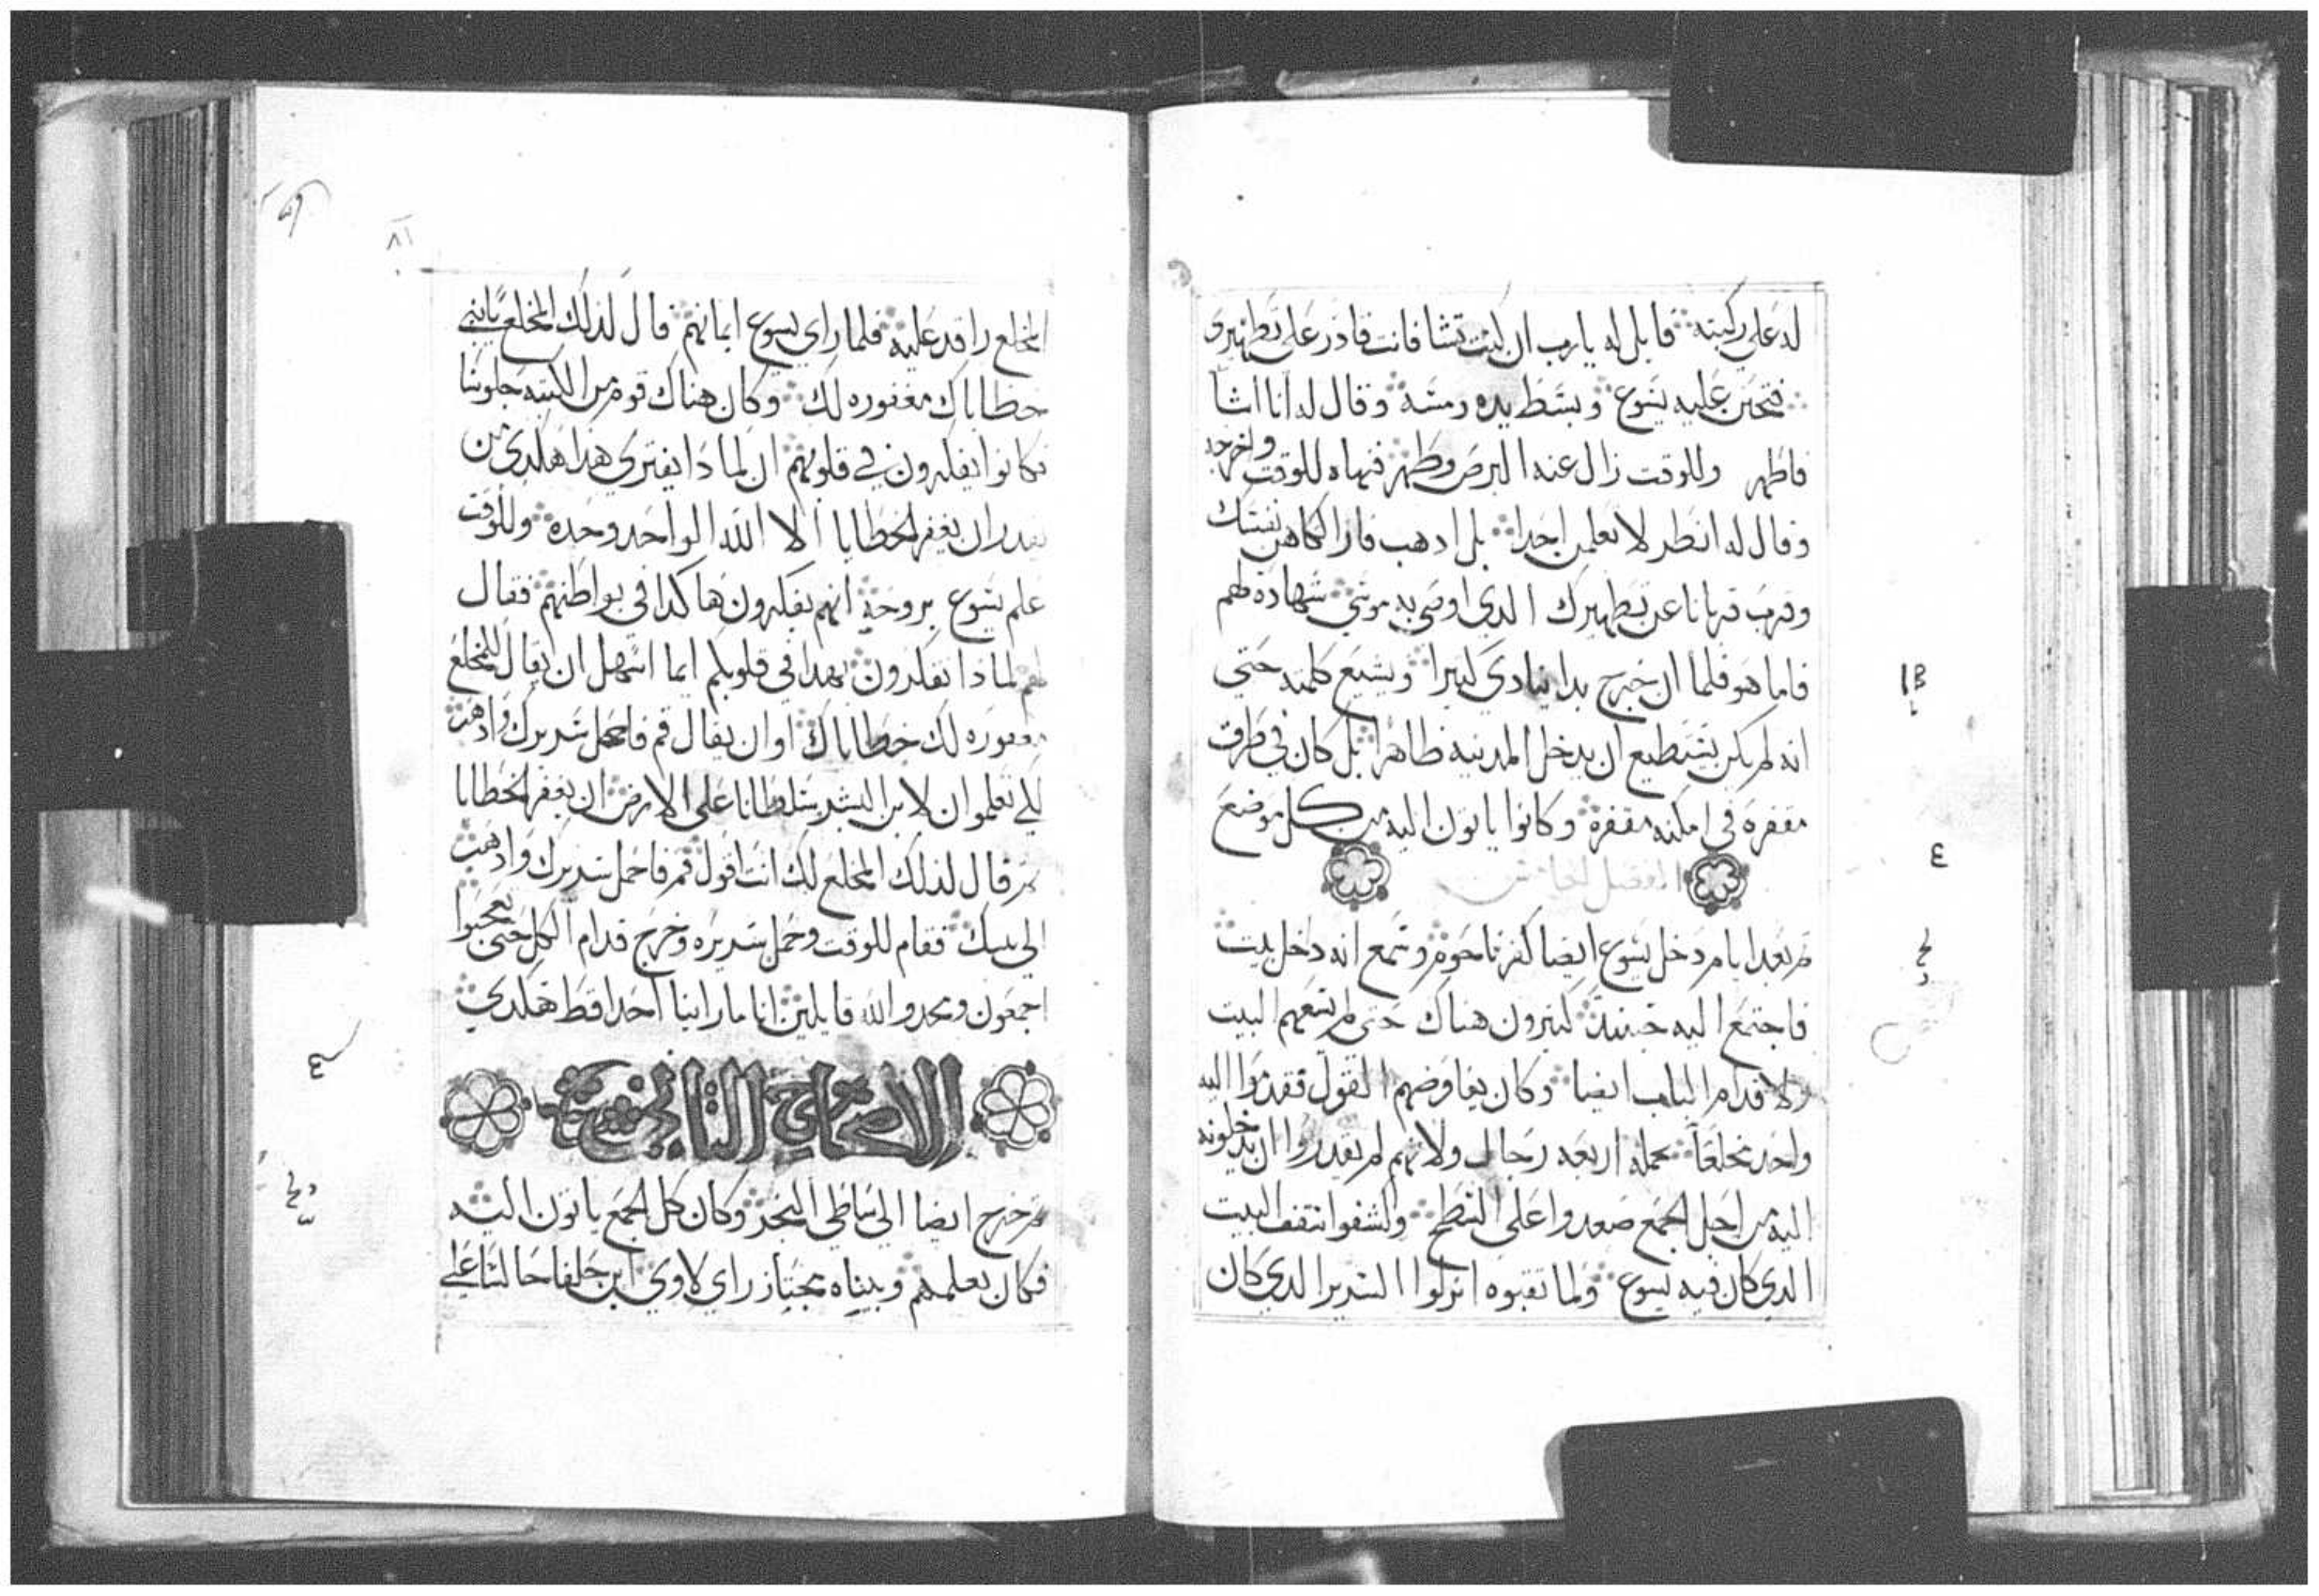 له على ركبته قايل له يا رب ان كنت تشا فانت قادر على تطهيرى
فتحنن عليه يسوع وبسط يده ومسه وقال له انا اشا
فاطهر وللوقت زال عنه البرص وطهر فنهاه للوقت واخرجه
وقال له انظر لا تعلمن احدا بل ادهب فار الكاهن نفسك
وقرب قربانا عن تطهيرك الدي اوصى به موسى شهادة لهم
فاما هو فلما ان خرج بدا ينادي كثيرا ويشيع كلمته حتى
انه لم يكن يستطيع ان يدخل المدينه ظاهرا بل كان في طرق
مقفره في امكنه مقفره وكانوا ياتون اليه من كل موضع
الفصل الخامس
ثم بعد ايام دخل يسوع ايضا كفرناحوم وسمع انه دخل بيت
فاجتمع اليه حينيد كثيرون هناك حتى لم يسعهم البيت
ولا قدام الباب ايضا وكان يفاوضهم القول فقدموا اليه
واحد مخلعا يحمله اربعه رجال ولانهم لم يقدروا ان يدخلونه
اليه من اجل الجمع صعدوا على السطح وكشفوا سقف البيت
الدي كان فيه يسوع ولما نقبوه انزلوا السرير الدي كان
٨١
المخلع راقد عليه فلما راي يسوع ايمانهم قال لدلك المخلع يا بني
خطاياك مغفوره لك وكان هناك قوم من الكتبه جلوسا
فكانوا يفكرون في قلوبهم ان لمادا يفتري هدا هكدي من
يقدر ان يغفر الخطايا الا الله الواحد وحده وللوقت
علم يسوع بروحه انهم يفكرون هاكدا في بواطنهم فقال
لهم لمادا تفكرون بهدا في قلوبكم ايما اسهل ان يقال للمخلع
مغفوره لك خطاياك او ان يقال قم فاحمل سريرك وادهب
لكي تعلموا ان لابن البشر سلطانا على الارض ان يغفر الخطايا
ثم قال لدلك المخلع لك انت اقول قم فاحمل سريرك وادهب
الى بيتك فقام للوقت وحمل سريره وخرج قدام الكل حتى تعجبوا
اجمعون ومجدوا الله قايلين اننا ما راينا احدا قط هكدي
الاصحاح التاني
ثم خرج ايضا الى شاطي البحر وكان كل الجمع ياتون اليه
فكان يعلمهم وبيناه مجتاز راي لاوي ابن حلفا جالسا على